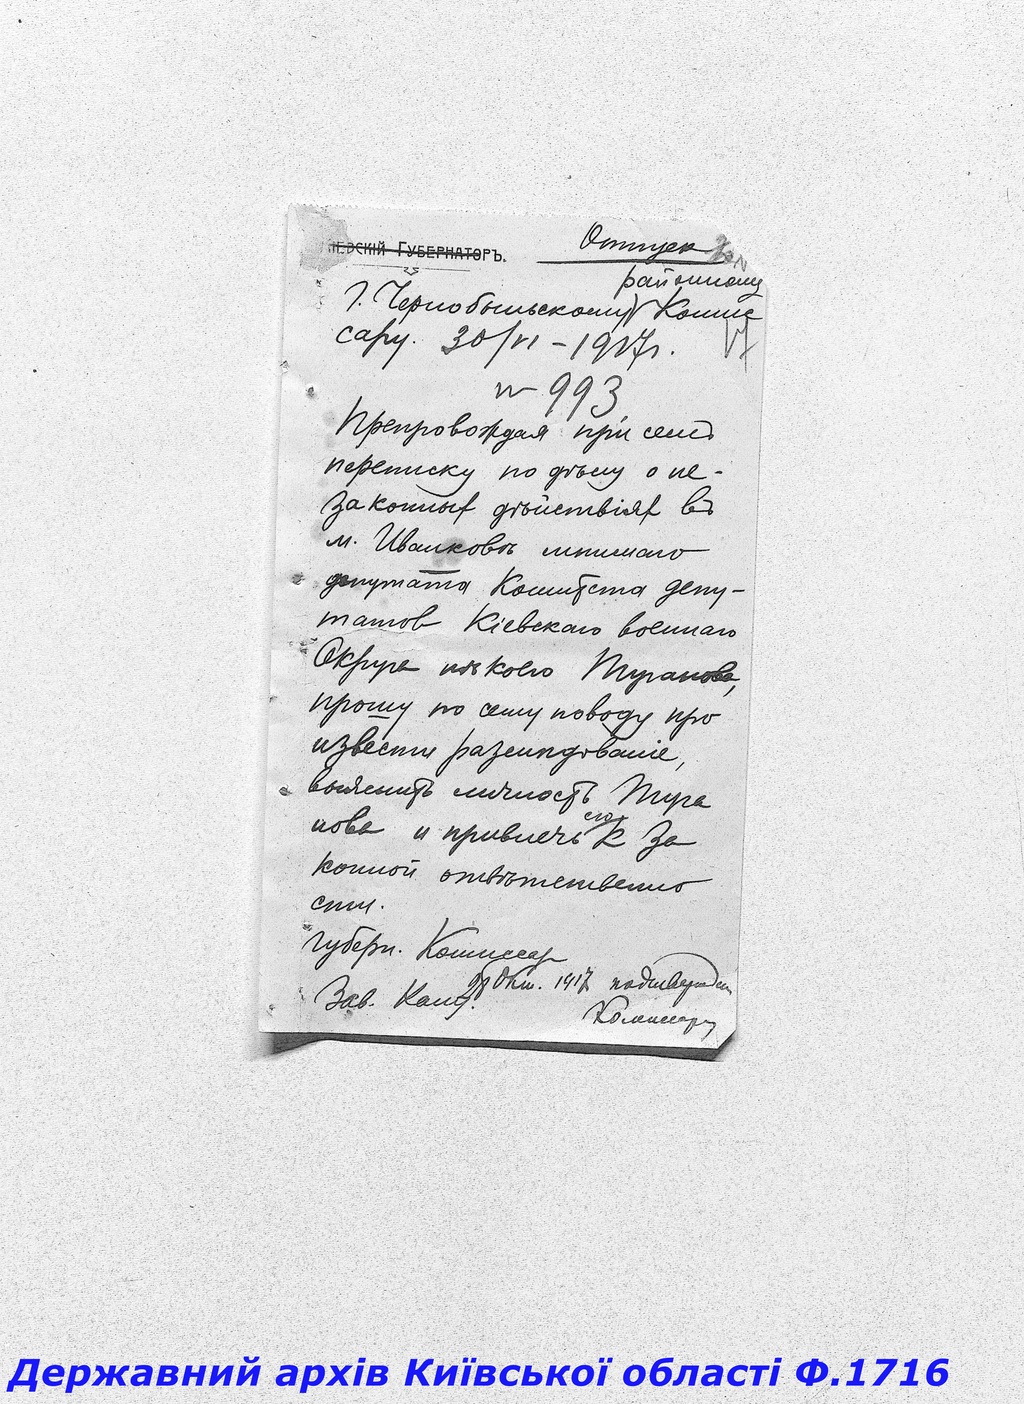 КІЕВСКІЙ ГУБЕРНАТОРЪ.
Отпуск
районному
Г. Чернобыльскому Комис
сару. 30/VI – 1917г.
№ 993
Препровождая при семъ
переписку по дѣлу о не-
законных дѣйствіях въ
м. Иванковѣ мнимаго
депутата Комитета депу-
татов Кіевскаго военнаго
Округа нѣкоего Туранова,
прошу по сему поводу про
извести разслѣдованіе,
выяснить личность Тура
нова и привлечь его к За
конной отвѣтственно
сти.
Губерн. Комиссар
Зав. Канц.
28 Окт. 1917 подтвержден
Комиссару
Державний архів Київської області Ф.1716